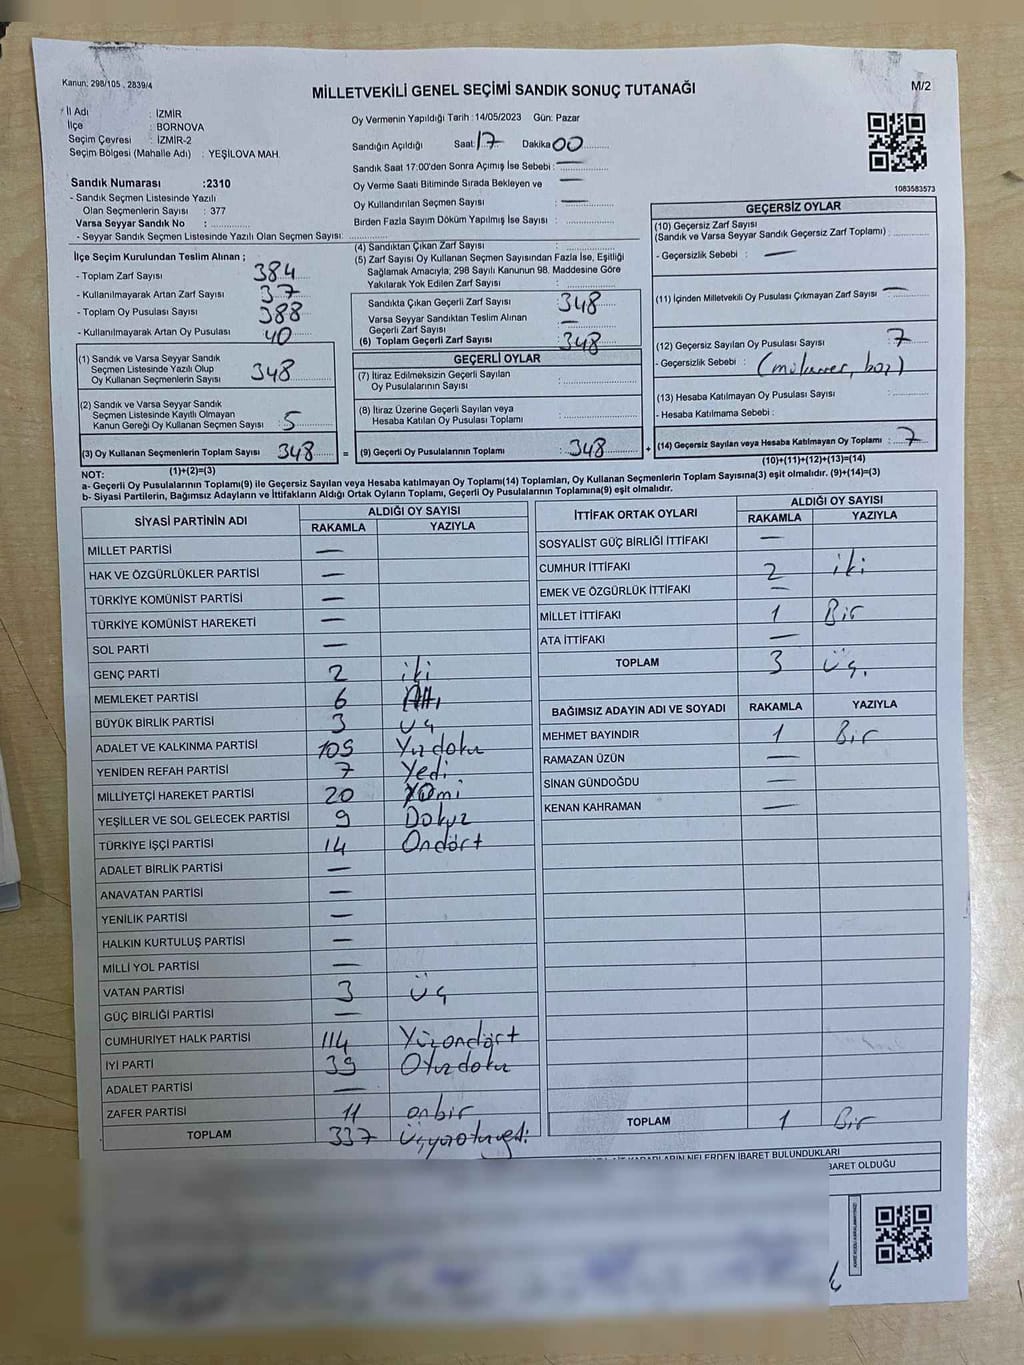 Kanun; 298/105 , 2839/4
MİLLETVEKİLİ GENEL SEÇİMİ SANDIK SONUÇ TUTANAĞI
M/2
İl Adı : İZMİR
İlçe : BORNOVA
Seçim Çevresi : İZMİR-2
Seçim Bölgesi (Mahalle Adı) : YEŞİLOVA MAH.
Oy Vermenin Yapıldığı Tarih : 14/05/2023 Gün: Pazar
Sandığın Açıldığı Saat: 17 Dakika 00
Sandık Saat 17:00'den Sonra Açımış İse Sebebi : —
Oy Verme Saati Bitiminde Sırada Bekleyen ve —
Oy Kullandırılan Seçmen Sayısı : —
Birden Fazla Sayım Döküm Yapılmış İse Sayısı :
1083583573
Sandık Numarası :2310
- Sandık Seçmen Listesinde Yazılı
Olan Seçmenlerin Sayısı : 377
Varsa Seyyar Sandık No :
- Seyyar Sandık Seçmen Listesinde Yazılı Olan Seçmen Sayısı:
İlçe Seçim Kurulundan Teslim Alınan ;
- Toplam Zarf Sayısı 384
- Kullanılmayarak Artan Zarf Sayısı 37
- Toplam Oy Pusulası Sayısı 388
- Kullanılmayarak Artan Oy Pusulası 40
(1) Sandık ve Varsa Seyyar Sandık
Seçmen Listesinde Yazılı Olup
Oy Kullanan Seçmenlerin Sayısı 348
(2) Sandık ve Varsa Seyyar Sandık
Seçmen Listesinde Kayıtlı Olmayan
Kanun Gereği Oy Kullanan Seçmen Sayısı : 5
(3) Oy Kullanan Seçmenlerin Toplam Sayısı 348 =
(1)+(2)=(3)
(4) Sandıktan Çıkan Zarf Sayısı :
(5) Zarf Sayısı Oy Kullanan Seçmen Sayısından Fazla İse, Eşitliği
Sağlamak Amacıyla, 298 Sayılı Kanunun 98. Maddesine Göre
Yakılarak Yok Edilen Zarf Sayısı :
Sandıkta Çıkan Geçerli Zarf Sayısı : 348
Varsa Seyyar Sandıktan Teslim Alınan
Geçerli Zarf Sayısı : —
(6) Toplam Geçerli Zarf Sayısı : 348
GEÇERLİ OYLAR
(7) İtiraz Edilmeksizin Geçerli Sayılan
Oy Pusulalarının Sayısı :
(8) İtiraz Üzerine Geçerli Sayılan veya
Hesaba Katılan Oy Pusulası Toplamı :
(9) Geçerli Oy Pusulalarının Toplamı : 348 +
GEÇERSİZ OYLAR
(10) Geçersiz Zarf Sayısı
(Sandık ve Varsa Seyyar Sandık Geçersiz Zarf Toplamı) :
- Geçersizlik Sebebi : —
(11) İçinden Milletvekili Oy Pusulası Çıkmayan Zarf Sayısı : —
(12) Geçersiz Sayılan Oy Pusulası Sayısı : 7
- Geçersizlik Sebebi :
(13) Hesaba Katılmayan Oy Pusulası Sayısı :
- Hesaba Katılmama Sebebi :
(14) Geçersiz Sayılan veya Hesaba Katılmayan Oy Toplamı : 7
(10)+(11)+(12)+(13)=(14)
NOT:
a- Geçerli Oy Pusulalarının Toplamı(9) ile Geçersiz Sayılan veya Hesaba katılmayan Oy Toplamı(14) Toplamları, Oy Kullanan Seçmenlerin Toplam Sayısına(3) eşit olmalıdır. (9)+(14)=(3)
b- Siyasi Partilerin, Bağımsız Adayların ve İttifakların Aldığı Ortak Oyların Toplamı, Geçerli Oy Pusulalarının Toplamına(9) eşit olmalıdır.
SİYASİ PARTİNİN ADI ALDIĞI OY SAYISI
RAKAMLA YAZIYLA
MİLLET PARTİSİ —
HAK VE ÖZGÜRLÜKLER PARTİSİ —
TÜRKİYE KOMÜNİST PARTİSİ —
TÜRKİYE KOMÜNİST HAREKETİ —
SOL PARTİ —
GENÇ PARTİ 2 iki
MEMLEKET PARTİSİ 6 Altı
BÜYÜK BİRLİK PARTİSİ 3 üç
ADALET VE KALKINMA PARTİSİ 109 Yüzdoku
YENİDEN REFAH PARTİSİ 7 Yedi
MİLLİYETÇİ HAREKET PARTİSİ 20
YEŞİLLER VE SOL GELECEK PARTİSİ 9 Dokuz
TÜRKİYE İŞÇİ PARTİSİ 14 Ondört
ADALET BİRLİK PARTİSİ —
ANAVATAN PARTİSİ —
YENİLİK PARTİSİ —
HALKIN KURTULUŞ PARTİSİ —
MİLLİ YOL PARTİSİ —
VATAN PARTİSİ 3 üç
GÜÇ BİRLİĞİ PARTİSİ —
CUMHURİYET HALK PARTİSİ 114 Yüzondört
İYİ PARTİ 39 Otuzdoku
ADALET PARTİSİ —
ZAFER PARTİSİ 11 onbir
TOPLAM 337 üçyüzotuzyedi
İTTİFAK ORTAK OYLARI ALDIĞI OY SAYISI
RAKAMLA YAZIYLA
SOSYALİST GÜÇ BİRLİĞİ İTTİFAKI —
CUMHUR İTTİFAKI 2 iki
EMEK VE ÖZGÜRLÜK İTTİFAKI —
MİLLET İTTİFAKI 1 Bir
ATA İTTİFAKI —
TOPLAM 3 üç.
BAĞIMSIZ ADAYIN ADI VE SOYADI RAKAMLA YAZIYLA
MEHMET BAYINDIR 1 Bir
RAMAZAN ÜZÜN —
SİNAN GÜNDOĞDU —
KENAN KAHRAMAN —
TOPLAM 1 Bir
NELERDEN İBARET BULUNDUKLARI
BARET OLDUĞU